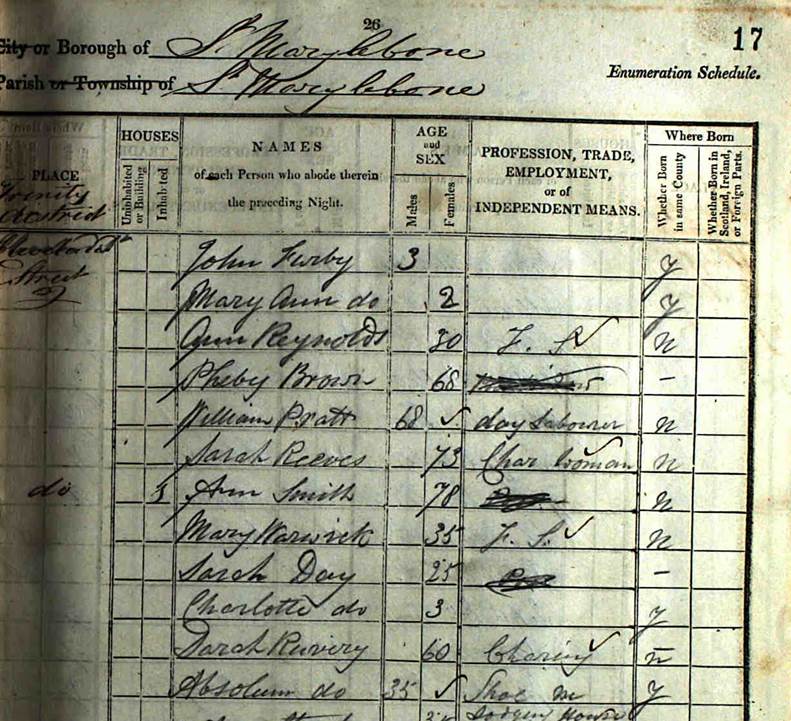 26
17
City or Borough of St Marylebone
Enumeration Schedule.
Parish or Township of St Marylebone
PLACE
HOUSES
Uninhabited or Building
Inhabited
NAMES
of each Person who abode therein
the preceding Night.
AGE
and
SEX
Males
Females
PROFESSION, TRADE,
EMPLOYMENT,
or of
INDEPENDENT MEANS.
Where Born
Whether Born in same County
Whether Born in Scotland, Ireland, or Foreign Parts.
Trinity
district
Street
John Furby 3 y
Mary Ann do 2 y
Ann Reynolds 30 F. S. n
Pheby Brown 68 –
William Pratt 68 day Labourer n
Sarah Reeves 73 Char Woman n
do 1 Ann Smith 78 n
Mary Warwick 35 F. S. n
Sarah Day 25 –
Charlotte do 3 y
Sarah 60 n
Absolum do 35 Shoe m y
35 Lodging House